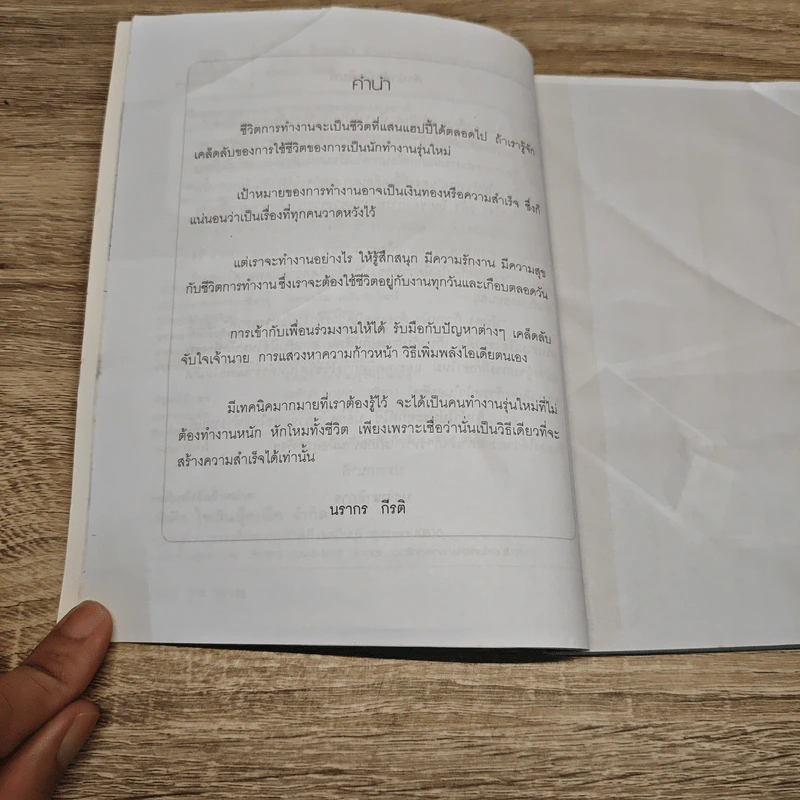 คำนำ
ชีวิตการทำงานจะเป็นชีวิตที่แสนแฮปปี้ได้ตลอดไป ถ้าเรารู้จัก
เคล็ดลับของการใช้ชีวิตของการเป็นนักทำงานรุ่นใหม่
เป้าหมายของการทำงานอาจเป็นเงินทองหรือความสำเร็จ ซึ่งก็
แน่นอนว่าเป็นเรื่องที่ทุกคนวาดหวังไว้
แต่เราจะทำงานอย่างไร ให้รู้สึกสนุก มีความรักงาน มีความสุข
กับชีวิตการทำงาน ซึ่งเราจะต้องใช้ชีวิตอยู่กับงานทุกวันและเกือบตลอดวัน
การเข้ากับเพื่อนร่วมงานให้ได้ รับมือกับปัญหาต่างๆ เคล็ดลับ
จับใจเจ้านาย การแสวงหาความก้าวหน้า วิธีเพิ่มพลังไอเดียตนเอง
มีเทคนิคมากมายที่เราต้องรู้ไว้ จะได้เป็นคนทำงานรุ่นใหม่ที่ไม่
ต้องทำงานหนัก หักโหมทั้งชีวิต เพียงเพราะเชื่อว่านั่นเป็นวิธีเดียวที่จะ
สร้างความสำเร็จได้เท่านั้น
นรากร กีรติ